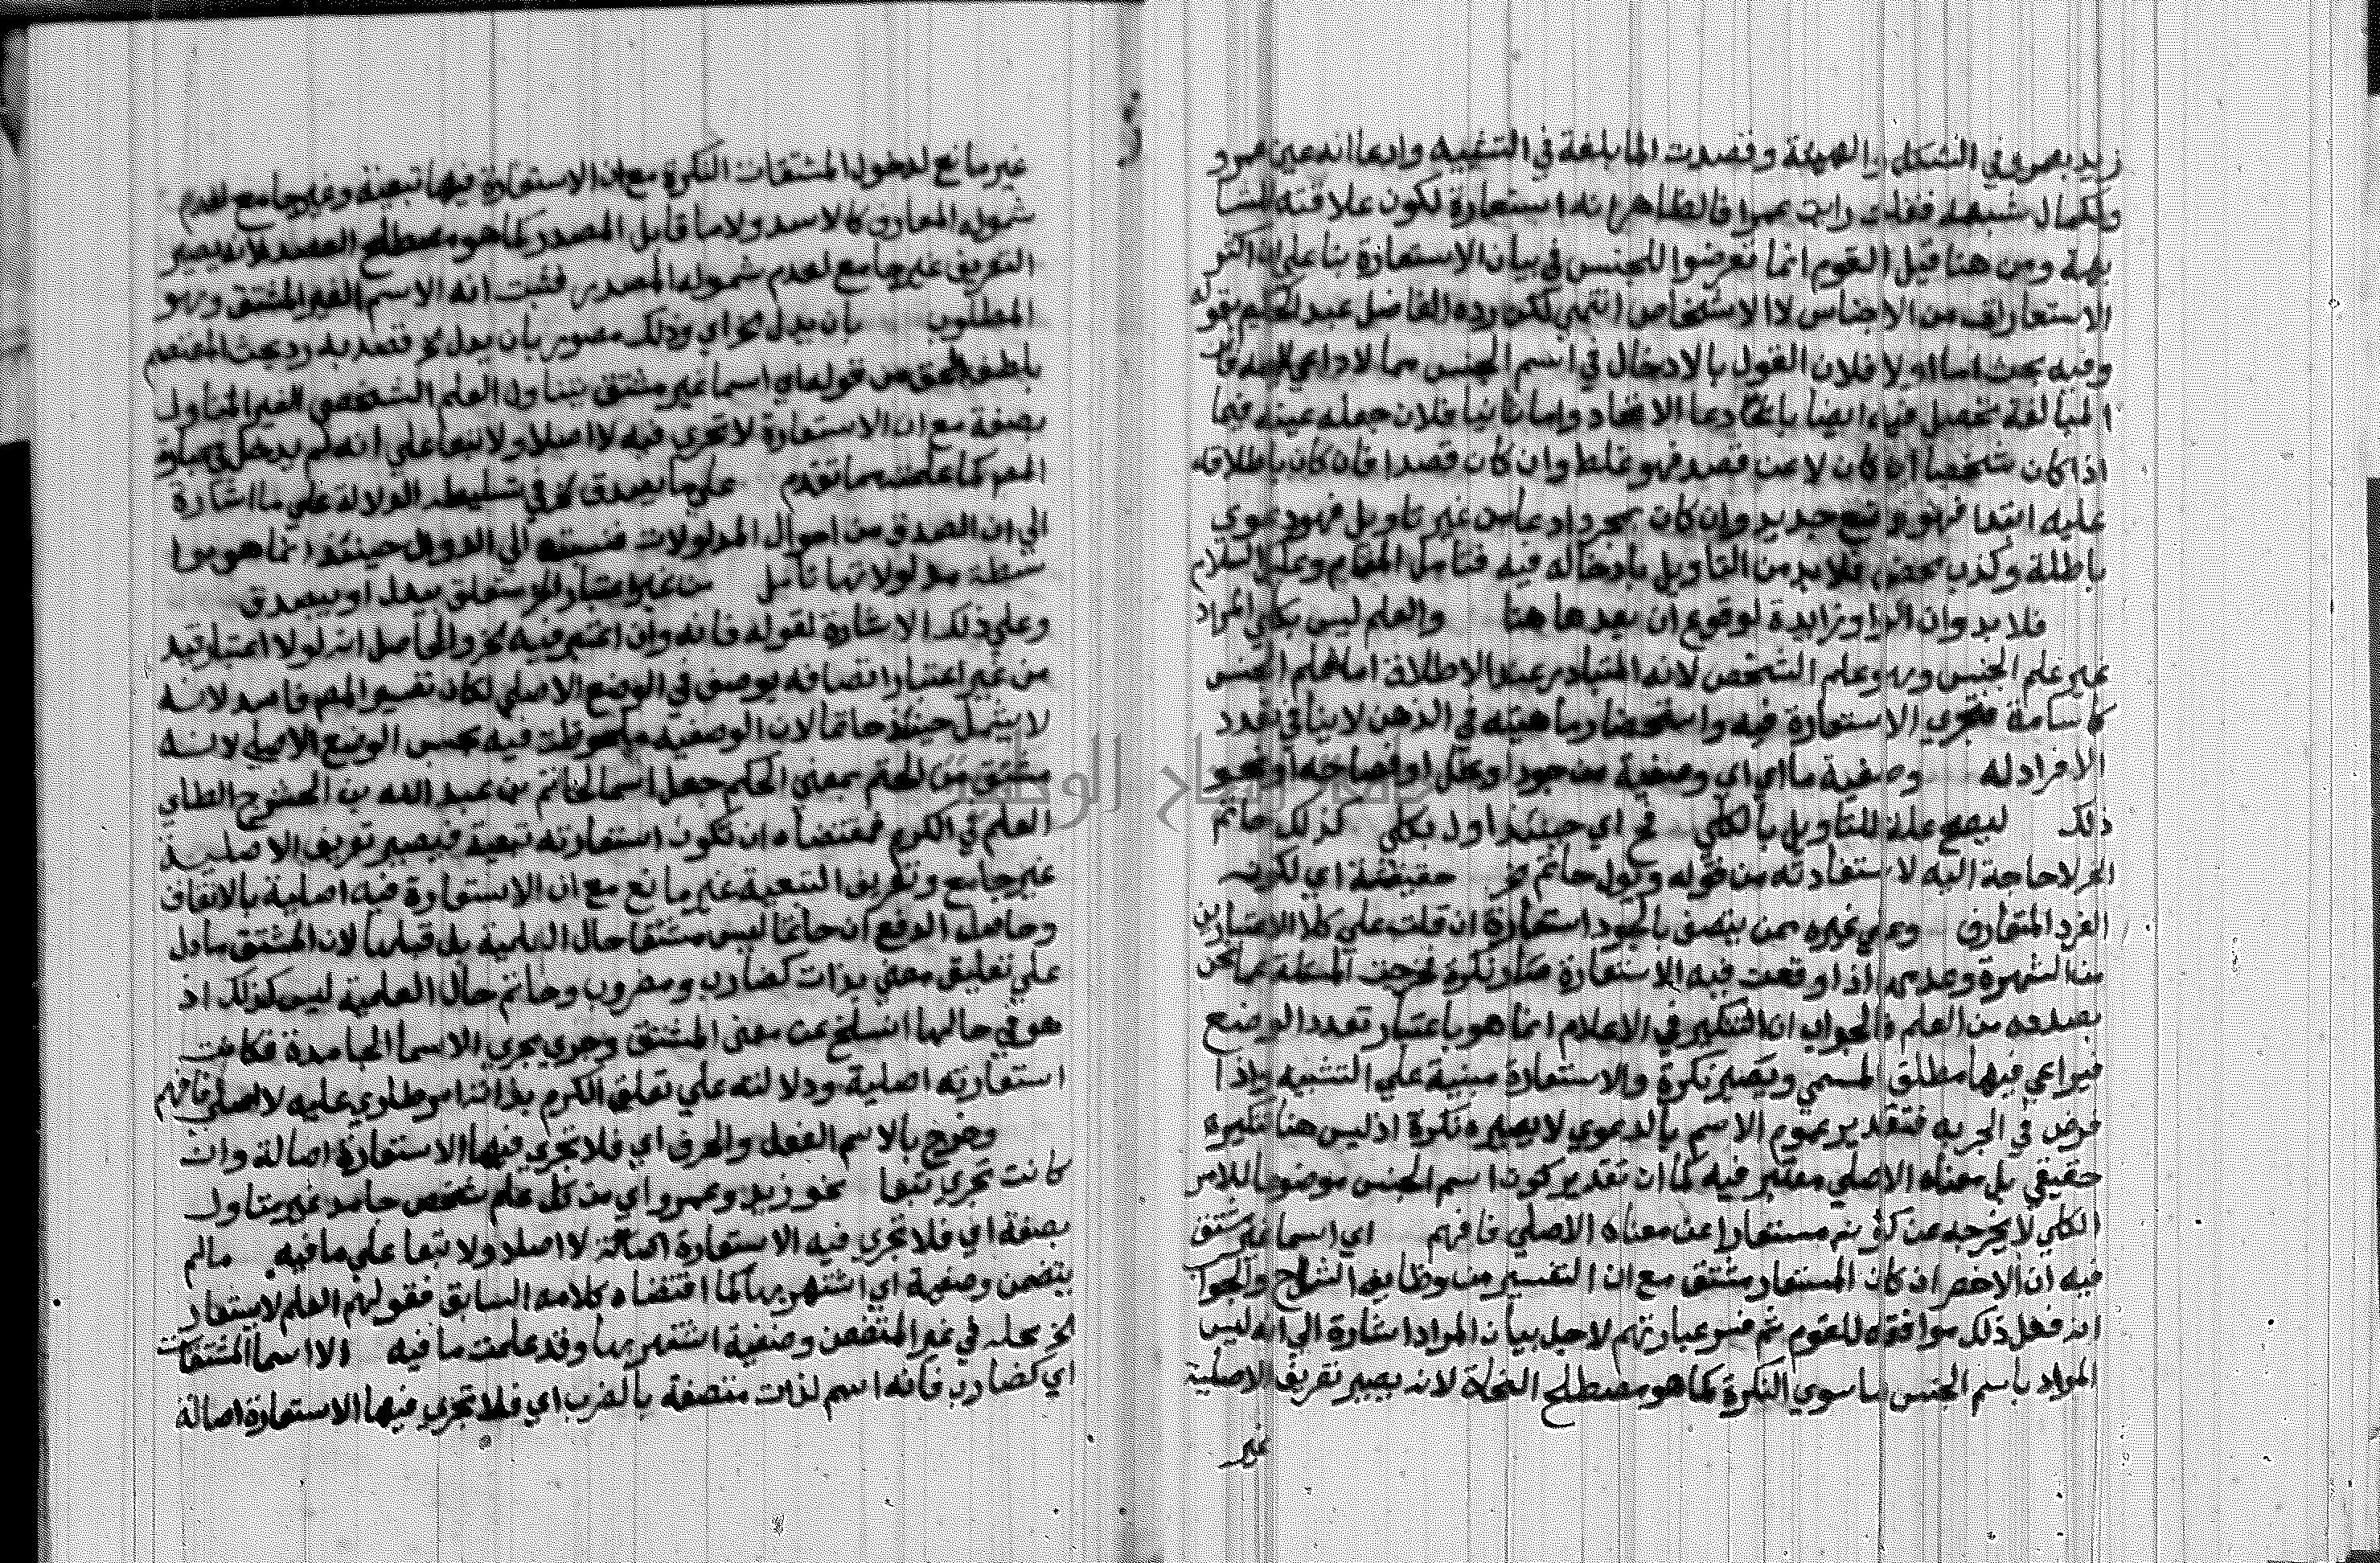 زيد بعمرو في الشكل والهيئة وقصدت المابلغة في التشبيه وادعا انه عين عمرو
ولكمال شبهه فقلت رايت عمرا فالظاهر انه استعارة لكون علاقته المشا
بهة ومن هنا قيل القوم انما تعرضوا للجنس في بيان الاستعارة بنا على ان اكثر
الاستعارات من الاجناس لا الاشخاص انتهى لكن رده الفاضل عبد الحكيم بقوله
وفيه بحث اما اولا فلان القول بالادخال في اسم الجنس مما لا داعي اليه فان
المبالغة تحصل فيه ايضا بادعا الاتحاد واما ثانيا فلان جعله عينه فيما
اذا كان شخصا ان كان لا عن قصد فهو غلط وان كان قصدا فان كان باطلاقه
عليه ابتدا فهو وضع جديد وان كان بمجرد ادعا من غير تاويل فهو دعوي
باطلة وكذب محض فلا بد من التاويل بادخاله فيه فتامل المقام وعلى السلام
فلا بد وان الواو زايدة لوقوع ان بعدها هنا والعلم ليس بكلي المراد
غير علم الجنس وهو علم الشخص لانه المتبادر عند الاطلاق اما علم الجنس
كاسامة فتجري الاستعارة فيه واستحضار ماهيته في الذهن لا ينافي تعدد
الافراد له وصفية ما اي اي وصفية من جود او بخل او فصاحة او نحو
ذلك ليصح علة للتاويل بالكلي فح اي حينئذ اول بكلي كذلك حاتم
الخ لا حاجة اليه لاستفادته من قوله وتول حاتم الخ حقيقة اي لكونه
الفرد المتعارف وعلى غيره ممن يتصف بالجود استعارة ان قلت على كلا الاعتبارين
من الشهرة وعدمها اذا وقعت فيه الاستعارة صار نكرة فخرجت المسئلة عما نحن
بصدده من العلم فالجواب ان التنكير في الاعلام انما هو باعتبار تعدد الوضع
فيراعي فيها مطلق المسمى ويصير نكرة والاستعارة مبنية على التشبيه
فتقدير عموم الاسم بالدعوي لا يصيره نكرة اذ ليس هنا تنكيره
حقيقي بل معناه الاصلي معتبر فيه كما ان تقدير كون اسم الجنس موضوعا للامر
الكلي لا يخرجه عن كونه مستعارا عن معناه الاصلي فافهم اي اسما غير مشتق
فيه ان الاخصر ان كان المستعار مشتق مع ان التفسير من وظايف الشراح والجواب
انه فعل ذلك موافقة للقوم ثم فسر عبارتهم لاجل بيان المراد اشارة الى انه ليس
المراد باسم الجنس ما سوي النكرة كما هو مصطلح النحاة لانه يصير تعريف الاصلية
غير
غير مانع لدخول المشتقات النكرة مع ان الاستعارة فيها تبعية وغير جامع لعدم
شموله المعارف كالاسد ولا ما قابل المصدر كما هو مصطلح العضد لانه يصير
التعريف غير جامع لعدم شموله المصدر فثبت انه الاسم الغير المشتق وهو
المطلوب بان يدل الخ اي وذلك مصور بان يدل الخ قصد به رد بحث العصام
من قوله اي اسما غير مشتق يتناول العلم الشخصي الغير المتاول
بصفة مع ان الاستعارة لا تجري فيه لا اصلا ولا تبعا على انه لم يدخل في عبارة
المص كما علمته مما تقدم على ما يصدق الخ في تسليط الدلالة على ما اشارة
الي ان الصدق من احوال المدلولات فنسبته الي الدوال حينئذ انما هو بوا
سطة مدلولاتها تامل من غير اعتبار الخ متعلق بيدل او بيصدق
وعلى ذلك الاشارة لقوله فانه وان اعتبر فيه الخ والحاصل انه لولا اعتبار قيد
من غير اعتبار اتصافه بوصف في الوضع الاصلي لكان تفسير المص فاسد لانه
لا يشمل حينئذ حاتما لان الوصفية ملحوظة فيه بحسب الوضع الاصلي لانه
مشتق من الحتم بمعنى الحكم جعل اسما لحاتم بن عبد الله بن الحشرج الطاي
العلم في الكرم فمقتضاه ان تكون استعارته تبعية فيصير تعريف الاصلية
غير جامع وتعريف التبعية غير مانع مع ان الاستعارة فيه اصلية بالاتفاق
وحاصل الدفع ان حاتما ليس مشتقا حال العلمية بل قبلها لان المشتق ما دل
على تعليق معنى بذات كضارب ومضروب وحاتم حال العلمية ليس كذلك اذ
هو في حالها انسلخ عن معنى المشتق وجري مجري الاسما الجامدة فكانت
استعارته اصلية ودلالته علي تعلق الكرم بذاتنا امر طاري عليه لا اصلي فافهم
وخرج بالاسم الفعل والحرف اي فلا تجري فيها الاستعارة اصالة وان
كانت تجري تبعا نحو زيد وعمرو اي من كل علم شخص جامد غير متاول
بصفة اي فلا تجري فيه الاستعارة اصالة لا اصلا ولا تبعا على ما فيه مالم
يتضمن وصفية اي اشتهر بها كما اقتضاه كلامه السابق فقولهم العلم لا يستعار
الخ محله في غير المتضمن وصفية اشتهر بها وقد علمت ما فيه الا اسما المشتقات
اي كضارب فانه اسم لذات متصفة بالضرب اي فلا تجري فيها الاستعارة اصالة